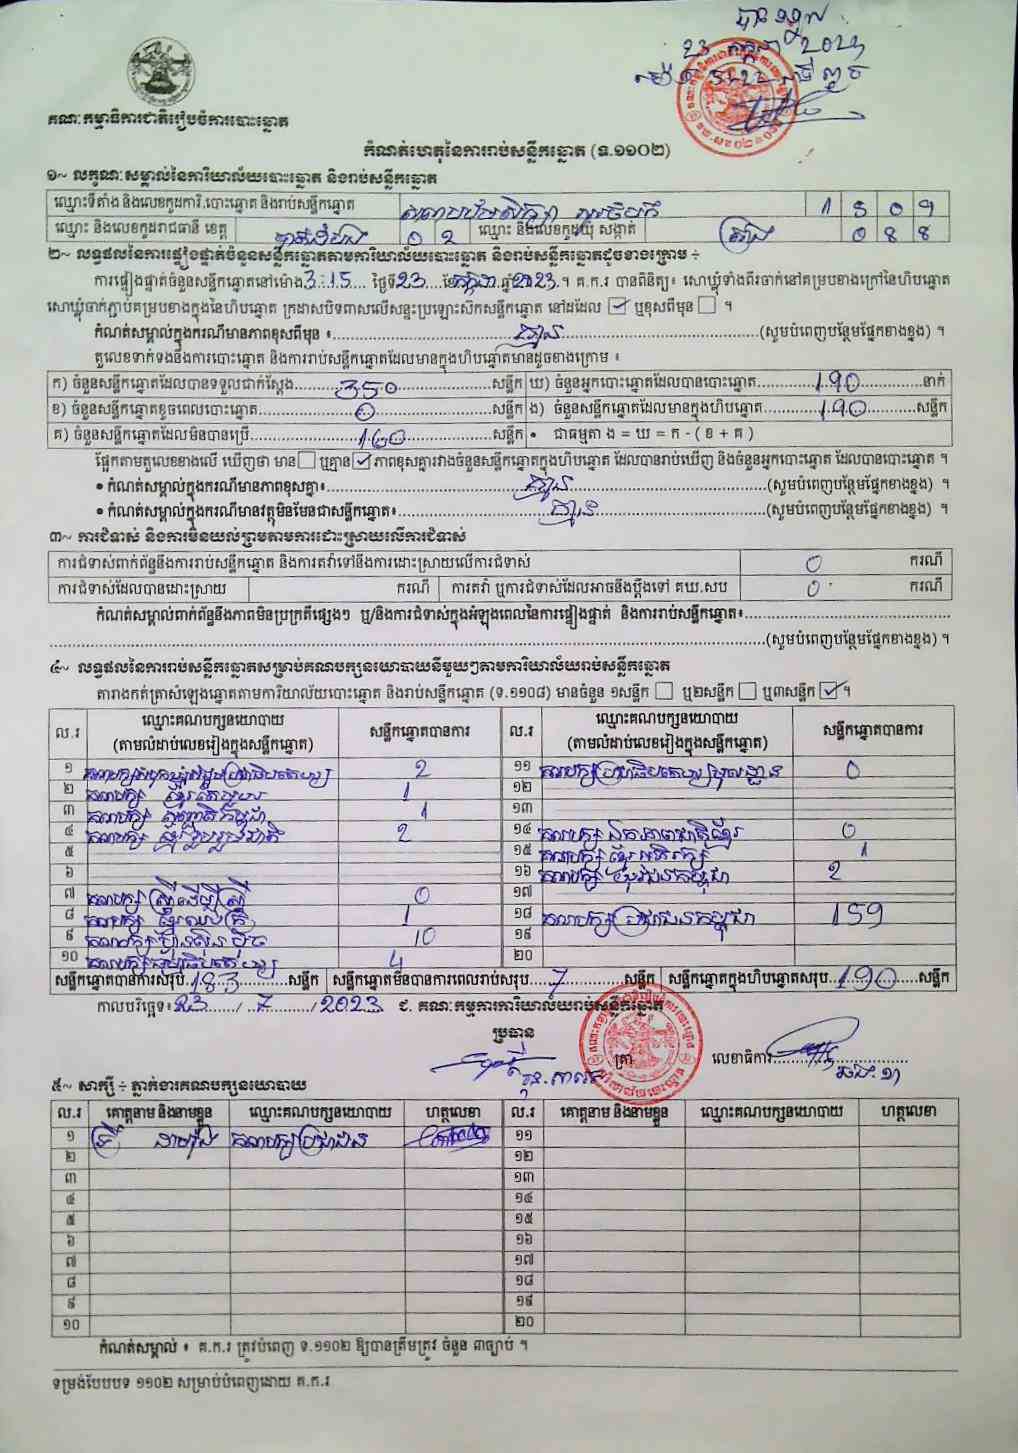 បានទទួល
23 កក្កដា 2023
គណៈកម្មាធិការជាតិរៀបចំការបោះឆ្នោត
កំណត់ហេតុនៃការរាប់សន្លឹកឆ្នោត (ទ.១១០២)
១~ លក្ខណៈសម្គាល់នៃការិយាល័យបោះឆ្នោត និងរាប់សន្លឹកឆ្នោត
ឈ្មោះទីតាំង និងលេខកូដការិ.បោះឆ្នោត និងរាប់សន្លឹកឆ្នោត 1 5 0 9
ឈ្មោះ និងលេខកូដរាជធានី ខេត្ត បាត់ដំបង 0 2 ឈ្មោះ និងលេខកូដឃុំ សង្កាត់ 0 8 8
២~ លទ្ធផលនៃការផ្ទៀងផ្ទាត់ចំនួនសន្លឹកឆ្នោតតាមការិយាល័យបោះឆ្នោត និងរាប់សន្លឹកឆ្នោតដូចខាងក្រោម ÷
ការផ្ទៀងផ្ទាត់ចំនួនសន្លឹកឆ្នោតនៅម៉ោង 3:15 ថ្ងៃទី 23 ខែ កក្កដា ឆ្នាំ 2023 ។ គ.ក.រ បានពិនិត្យ៖ សោឃ្លុំទាំងពីរចាក់នៅគម្របខាងក្រៅនៃហិបឆ្នោត
សោឃ្លុំចាក់ភ្ជាប់គម្របខាងក្នុងនៃហិបឆ្នោត ក្រដាសបិទពាសលើសន្ទះប្រឡោះសិកសន្លឹកឆ្នោត នៅដដែល ☑ ឬខុសពីមុន ☐ ។
កំណត់សម្គាល់ក្នុងករណីមានភាពខុសពីមុន ៖ គ្មាន (សូមបំពេញបន្ថែមផ្នែកខាងខ្នង) ។
តួលេខទាក់ទងនឹងការបោះឆ្នោត និងការរាប់សន្លឹកឆ្នោតដែលមានក្នុងហិបឆ្នោតមានដូចខាងក្រោម ៖
ក) ចំនួនសន្លឹកឆ្នោតដែលបានទទួលជាក់ស្តែង 350 សន្លឹក ឃ) ចំនួនអ្នកបោះឆ្នោតដែលបានបោះឆ្នោត 190 នាក់
ខ) ចំនួនសន្លឹកឆ្នោតខូចពេលបោះឆ្នោត 0 សន្លឹក ង) ចំនួនសន្លឹកឆ្នោតដែលមានក្នុងហិបឆ្នោត 190 សន្លឹក
គ) ចំនួនសន្លឹកឆ្នោតដែលមិនបានប្រើ 160 សន្លឹក • ជាធម្មតា ង = ឃ = ក - ( ខ + គ )
ផ្អែកតាមតួលេខខាងលើ ឃើញថា មាន ☐ ឬគ្មាន ☑ ភាពខុសគ្នារវាងចំនួនសន្លឹកឆ្នោតក្នុងហិបឆ្នោត ដែលបានរាប់ឃើញ និងចំនួនអ្នកបោះឆ្នោត ដែលបានបោះឆ្នោត ។
• កំណត់សម្គាល់ក្នុងករណីមានភាពខុសគ្នា៖ គ្មាន (សូមបំពេញបន្ថែមផ្នែកខាងខ្នង) ។
• កំណត់សម្គាល់ក្នុងករណីមានវត្ថុមិនមែនជាសន្លឹកឆ្នោត៖ គ្មាន (សូមបំពេញបន្ថែមផ្នែកខាងខ្នង) ។
៣~ ការជំទាស់ និងការមិនយល់ព្រមតាមការដោះស្រាយលើការជំទាស់
ការជំទាស់ពាក់ព័ន្ធនឹងការរាប់សន្លឹកឆ្នោត និងការតវ៉ាទៅនឹងការដោះស្រាយលើការជំទាស់ 0 ករណី
ការជំទាស់ដែលបានដោះស្រាយ ករណី ការតវ៉ា ឬការជំទាស់ដែលអាចនឹងប្តឹងទៅ គឃ.សប 0 ករណី
កំណត់សម្គាល់ពាក់ព័ន្ធនឹងភាពមិនប្រក្រតីផ្សេងៗ ឬ/និងការជំទាស់ក្នុងអំឡុងពេលនៃការផ្ទៀងផ្ទាត់ និងការរាប់សន្លឹកឆ្នោត៖
(សូមបំពេញបន្ថែមផ្នែកខាងខ្នង) ។
៤~ លទ្ធផលនៃការរាប់សន្លឹកឆ្នោតសម្រាប់គណបក្សនយោបាយនីមួយៗតាមការិយាល័យរាប់សន្លឹកឆ្នោត
តារាងកត់ត្រាសំឡេងឆ្នោតតាមការិយាល័យបោះឆ្នោត និងរាប់សន្លឹកឆ្នោត (ទ.១១០៨) មានចំនួន ១សន្លឹក ☐ ឬ២សន្លឹក ☐ ឬ៣សន្លឹក ☑ ។
ល.រ ឈ្មោះគណបក្សនយោបាយ (តាមលំដាប់លេខរៀងក្នុងសន្លឹកឆ្នោត) សន្លឹកឆ្នោតបានការ ល.រ ឈ្មោះគណបក្សនយោបាយ (តាមលំដាប់លេខរៀងក្នុងសន្លឹកឆ្នោត) សន្លឹកឆ្នោតបានការ
១ គណបក្សសំបុកឃ្មុំសង្គមប្រជាធិបតេយ្យ 2 ១១ គណបក្សប្រជាធិបតេយ្យមូលដ្ឋាន 0
២ គណបក្ស ខ្មែរតែមួយ 1 ១២
៣ គណបក្ស កម្ពុជា 1 ១៣
៤ គណបក្ស ខ្មែររួបរួមជាតិ 2 ១៤ គណបក្ស ឯកភាពជាតិខ្មែរ 0
៥ ១៥ គណបក្ស ខ្មែរអភិរក្ស 1
៦ ១៦ គណបក្ស យុវជនកម្ពុជា 2
៧ គណបក្ស ស្ត្រីដើម្បីស្ត្រី 0 ១៧
៨ គណបក្ស ខ្មែរឈប់ក្រ 1 ១៨ គណបក្សប្រជាជនកម្ពុជា 159
៩ គណបក្សហ្វ៊ុនស៊ិនប៉ិច 10 ១៩
១០ គណបក្សធម្មាធិបតេយ្យ 4 ២០
សន្លឹកឆ្នោតបានការសរុប 183 សន្លឹក សន្លឹកឆ្នោតមិនបានការពេលរាប់សរុប 7 សន្លឹក សន្លឹកឆ្នោតក្នុងហិបឆ្នោតសរុប 190 សន្លឹក
កាលបរិច្ឆេទ៖ 23 / 7 / 2023 ជ. គណៈកម្មការការិយាល័យរាប់សន្លឹកឆ្នោត
ប្រធាន
ត្រា លេខាធិការ
៥~ សាក្សី ÷ ភ្នាក់ងារគណបក្សនយោបាយ
ល.រ គោត្តនាម និងនាមខ្លួន ឈ្មោះគណបក្សនយោបាយ ហត្ថលេខា ល.រ គោត្តនាម និងនាមខ្លួន ឈ្មោះគណបក្សនយោបាយ ហត្ថលេខា
១ គណបក្សប្រជាជន ១១
២ ១២
៣ ១៣
៤ ១៤
៥ ១៥
៦ ១៦
៧ ១៧
៨ ១៨
៩ ១៩
១០ ២០
កំណត់សម្គាល់ ៖ គ.ក.រ ត្រូវបំពេញ ទ.១១០២ ឱ្យបានត្រឹមត្រូវ ចំនួន ៣ច្បាប់ ។
ទម្រង់បែបបទ ១១០២ សម្រាប់បំពេញដោយ គ.ក.រ